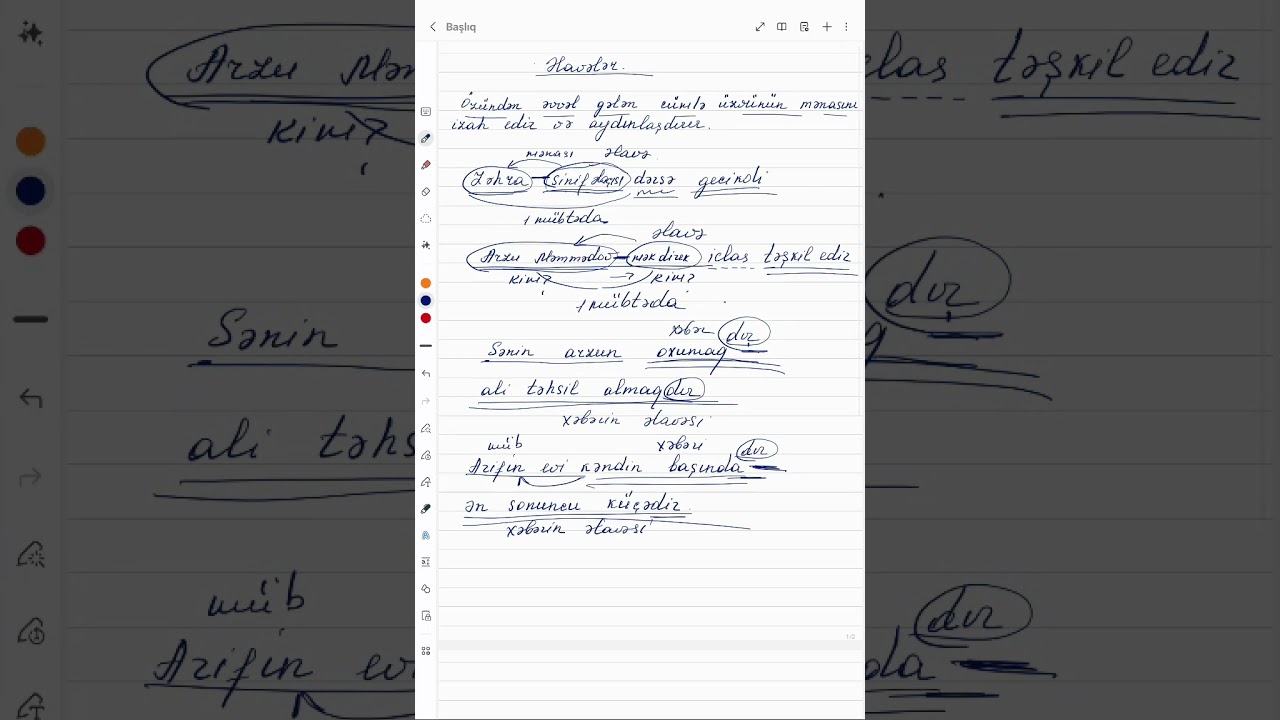 Başlıq
Əlavələr.
Özündən əvvəl gələn cümlə üzvünün mənasını
izah edir və aydınlaşdırır.
mənası əlavə
Zəhra – sinif dərsə gecikdi
1 mübtəda
əlavə
Arzu Məmmədov – mək direk iclas təşkil edir
kim? kim?
1 mübtəda
xəbər dır
Sənin arzun oxumaq
ali təhsil almaqdır
xəbərin əlavəsi
müb xəbəri dır
Arifin evi kəndin başında
ən sonuncu küçədir.
xəbərin əlavəsi
1/2
Arzu Məm
clas təşkil edir
kim?
Sənin
dır
q
ali təhs
müb
dır
Arifin evi
da